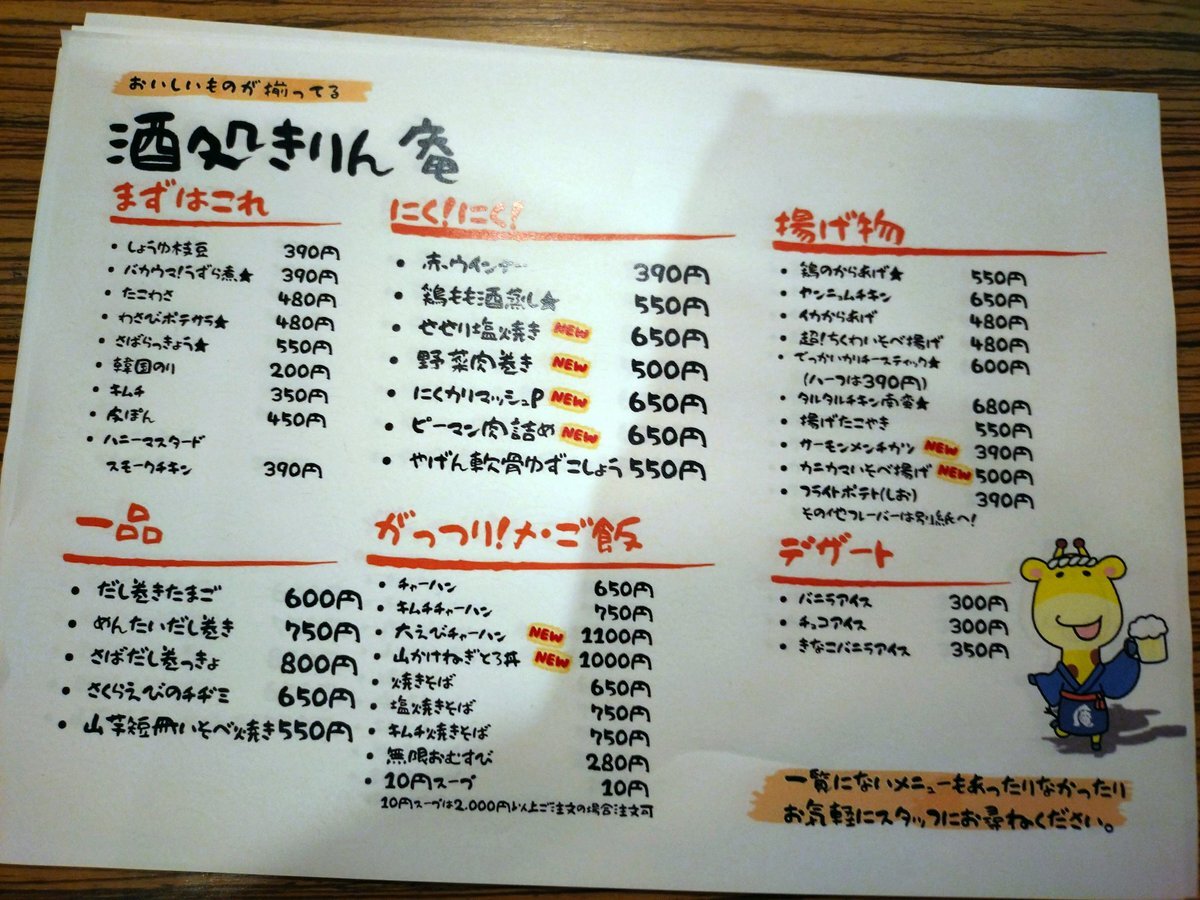 おいしいものが揃ってる
酒処きりん庵
まずはこれ
・しょうゆ枝豆 390円
・バカウマ!うずら煮★ 390円
・たこわさ 480円
・わさびポテサラ★ 480円
・さばらっきょう★ 550円
・韓国のり 200円
・キムチ 350円
・皮ぽん 450円
・ハニーマスタード
スモークチキン 390円
にく!にく!
・赤ウインナー 390円
・鶏もも酒蒸し★ 550円
・せせり塩焼き NEW 650円
・野菜肉巻き NEW 500円
・にくカリマッシュP NEW 650円
・ピーマン肉詰め NEW 650円
・やげん軟骨ゆずこしょう 550円
揚げ物
・鶏のからあげ★ 550円
・ヤンニョムチキン 650円
・イカからあげ 480円
・超!ちくわいそべ揚げ 480円
・でっかいかリチースティック★ 600円
(ハーフは390円)
・タルタルチキン南蛮★ 680円
・揚げたこやき 550円
・サーモンメンチカツ NEW 390円
・カニカマいそべ揚げ NEW 500円
・フライトポテト(しお) 390円
その他フレーバーは別紙へ!
一品
・だし巻きたまご 600円
・めんたいだし巻き 750円
・さばだし巻っきょ 800円
・さくらえびのチヂミ 650円
・山芋短冊いそべ焼き 550円
がっつり!〆・ご飯
・チャーハン 650円
・キムチチャーハン 750円
・大えびチャーハン NEW 1100円
・山かけねぎとろ丼 NEW 1000円
・焼きそば 650円
・塩焼きそば 750円
・キムチ焼きそば 750円
・無限おむすび 280円
・10円スープ 10円
10円スープは2,000円以上ご注文の場合注文可
デザート
・バニラアイス 300円
・チョコアイス 300円
・きなこバニラアイス 350円
庵
一覧にないメニューもあったりなかったり
お気軽にスタッフにお尋ねください。